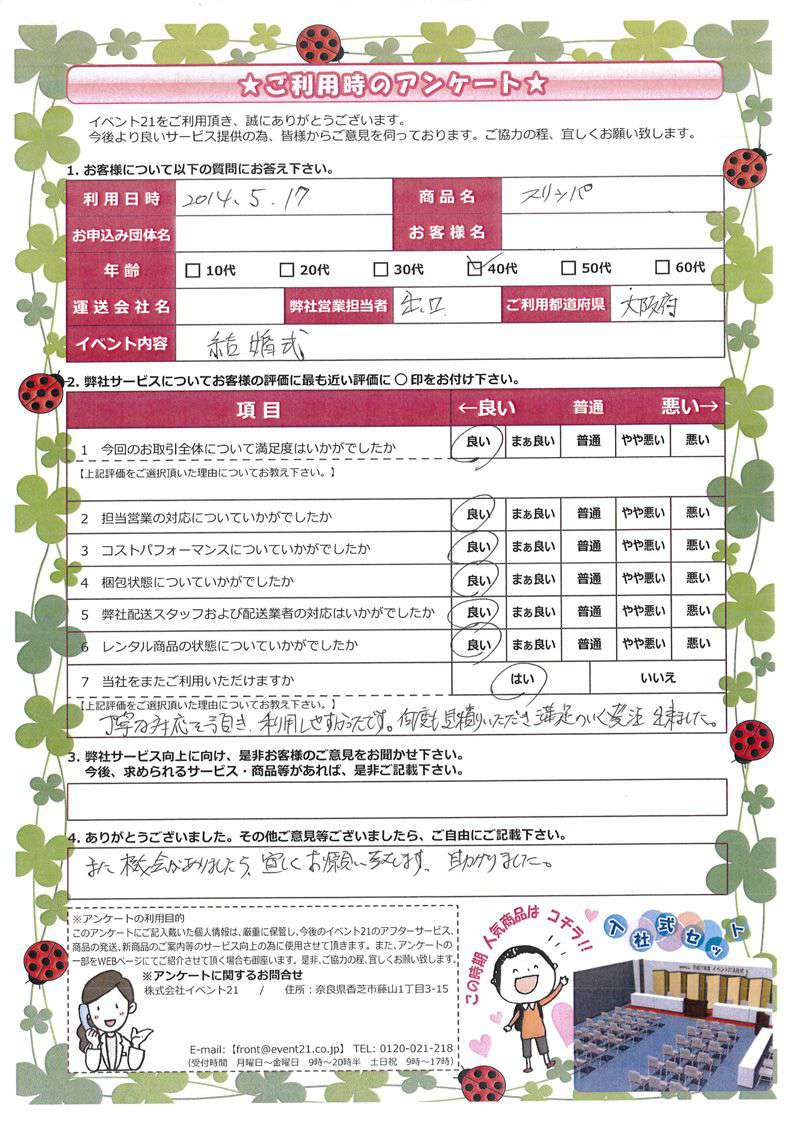 ★ご利用時のアンケート★
イベント21をご利用頂き、誠にありがとうございます。
今後より良いサービス提供の為、皆様からご意見を伺っております。ご協力の程、宜しくお願い致します。
1. お客様について以下の質問にお答え下さい。
利用日時 2014.5.17 商品名 スリッパ
お申込み団体名 お客様名
年齢 10代 20代 30代 40代 50代 60代
運送会社名 弊社営業担当者 出口 ご利用都道府県 大阪府
イベント内容 結婚式
2. 弊社サービスについてお客様の評価に最も近い評価に ○ 印をお付け下さい。
項目 ←良い 普通 悪い→
1 今回のお取引全体について満足度はいかがでしたか 良い まぁ良い 普通 やや悪い 悪い
【上記評価をご選択頂いた理由についてお教え下さい。】
2 担当営業の対応についていかがでしたか 良い まぁ良い 普通 やや悪い 悪い
3 コストパフォーマンスについていかがでしたか 良い まぁ良い 普通 やや悪い 悪い
4 梱包状態についていかがでしたか 良い まぁ良い 普通 やや悪い 悪い
5 弊社配送スタッフおよび配送業者の対応はいかがでしたか 良い まぁ良い 普通 やや悪い 悪い
6 レンタル商品の状態についていかがでしたか 良い まぁ良い 普通 やや悪い 悪い
7 当社をまたご利用いただけますか はい いいえ
【上記評価をご選択頂いた理由についてお教え下さい。】
丁寧な対応を頂き、利用しやすかったです。何度も見積りいただき満足のいく発注出来ました。
3. 弊社サービス向上に向け、是非お客様のご意見をお聞かせ下さい。
今後、求められるサービス・商品等があれば、是非ご記載下さい。
4. ありがとうございました。その他ご意見等ございましたら、ご自由にご記載下さい。
また機会がありましたら、宜しくお願い致します。助かりました。
※アンケートの利用目的
このアンケートにご記入戴いた個人情報は、厳重に保管し、今後のイベント21のアフターサービス、
商品の発送、新商品のご案内等のサービス向上の為に使用させて頂きます。また、アンケートの
一部をWEBページにてご紹介させて頂く場合も御座います。是非、ご協力の程、宜しくお願い致します。
※アンケートに関するお問合せ
株式会社イベント21 / 住所：奈良県香芝市藤山1丁目3-15
E-mail:【front@event21.co.jp】 TEL: 0120-021-218
(受付時間 月曜日～金曜日 9時～20時半 土日祝 9時～17時)
この時期 人気商品は コチラ!!
入社式セット